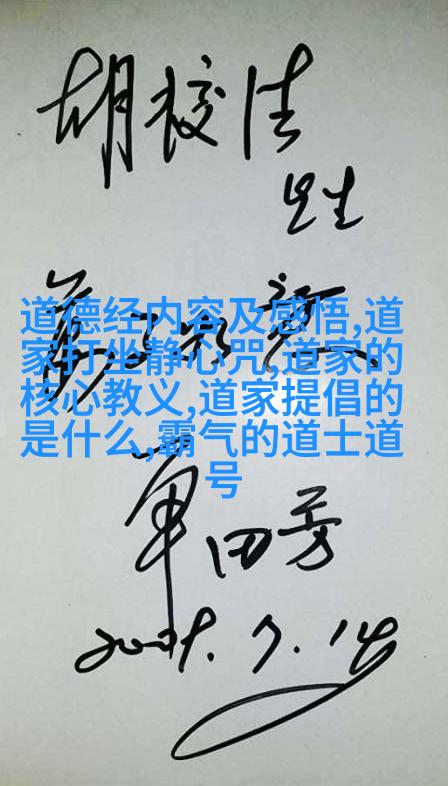 胡
先生
道德经内容及感悟,道
家打坐静心咒,道家的
核心教义,道家提倡的
是什么,霸气的道士道
号
单田芳